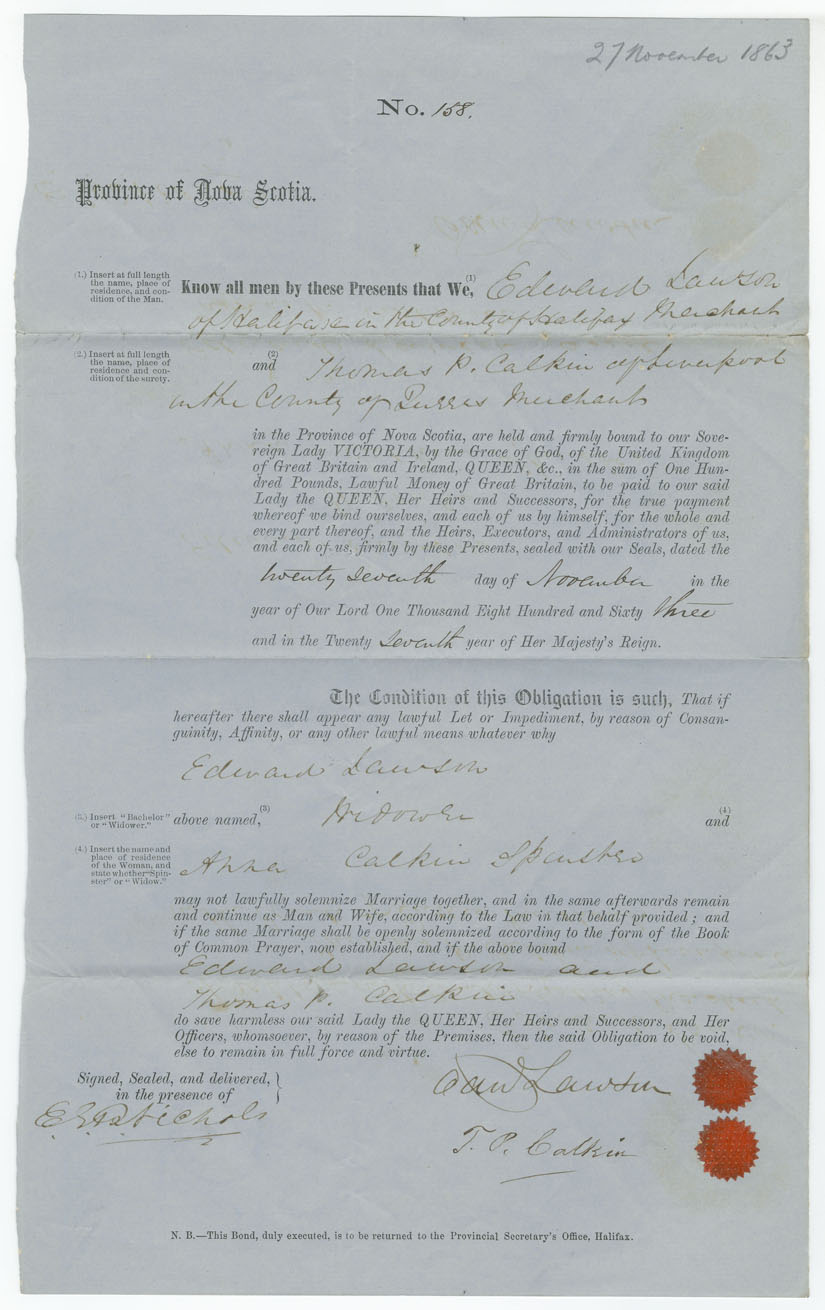 27 November 1863
No. 158.
Province of Nova Scotia.
(1.) Insert at full length
the name, place of
residence, and con-
dition of the Man.
Know all men by these Presents that We, (1) Edward Lawson
of Halifax in the County of Halifax Merchant
(2.) Insert at full length
the name, place of
residence and con-
dition of the surety.
(2)
and Thomas P. Calkin of Liverpool
in the County of Queens Merchant
in the Province of Nova Scotia, are held and firmly bound to our Sove-
reign Lady VICTORIA, by the Grace of God, of the United Kingdom
of Great Britain and Ireland, QUEEN, &c., in the sum of One Hun-
dred Pounds, Lawful Money of Great Britain, to be paid to our said
Lady the QUEEN, Her Heirs and Successors, for the true payment
whereof we bind ourselves, and each of us by himself, for the whole and
every part thereof, and the Heirs, Executors, and Administrators of us,
and each of us, firmly by these Presents, sealed with our Seals, dated the
twenty seventh day of November in the
year of Our Lord One Thousand Eight Hundred and Sixty three
and in the Twenty seventh year of Her Majesty's Reign.
The Condition of this Obligation is such, That if
hereafter there shall appear any lawful Let or Impediment, by reason of Consan-
guinity, Affinity, or any other lawful means whatever why
Edward Lawson
(3.) Insert "Bachelor"
or "Widower."
above named, (3) Widower (4) and
(4.) Insert the name and
place of residence
of the Woman, and
state whether "Spin-
ster" or "Widow."
Anna Calkin Spinster
may not lawfully solemnize Marriage together, and in the same afterwards remain
and continue as Man and Wife, according to the Law in that behalf provided; and
if the same Marriage shall be openly solemnized according to the form of the Book
of Common Prayer, now established, and if the above bound
Edward Lawson and
Thomas P. Calkin
do save harmless our said Lady the QUEEN, Her Heirs and Successors, and Her
Officers, whomsoever, by reason of the Premises, then the said Obligation to be void,
else to remain in full force and virtue.
Signed, Sealed, and delivered,
in the presence of
Lawson
Nichols
T. P. Calkin
N. B.—This Bond, duly executed, is to be returned to the Provincial Secretary's Office, Halifax.